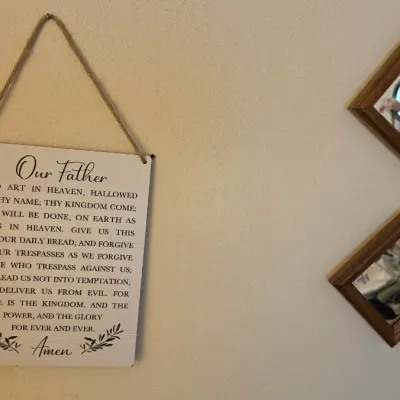 Our Father
ART IN HEAVEN, HALLOWED
THY NAME; THY KINGDOM COME;
WILL BE DONE, ON EARTH AS
IN HEAVEN. GIVE US THIS
OUR DAILY BREAD; AND FORGIVE
OUR TRESPASSES AS WE FORGIVE
WHO TRESPASS AGAINST US;
LEAD US NOT INTO TEMPTATION,
DELIVER US FROM EVIL. FOR
IS THE KINGDOM, AND THE
POWER, AND THE GLORY
FOR EVER AND EVER.
Amen